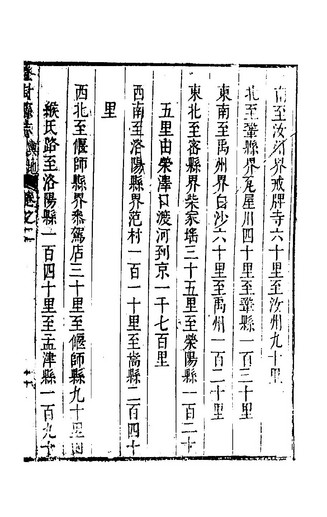 南至汝州界戒牌寺六十里至汝州九十里
北至鞏縣界尾屋川四十里至鞏縣一百三十里
東南至禹州界白沙六十里至禹州一百二十里
東北至密縣界柴家瑤三十五里至滎陽縣一百二十
五里由滎澤口渡河到京一千七百里
西南至洛陽縣界范村一百一十里至嵩縣二百四十
里
西北至偃師縣界叅駕店三十里至偃師縣九十里由
緱氏路至洛陽縣一百四十里至孟津縣一百九十
登封縣志 輿地 卷之二